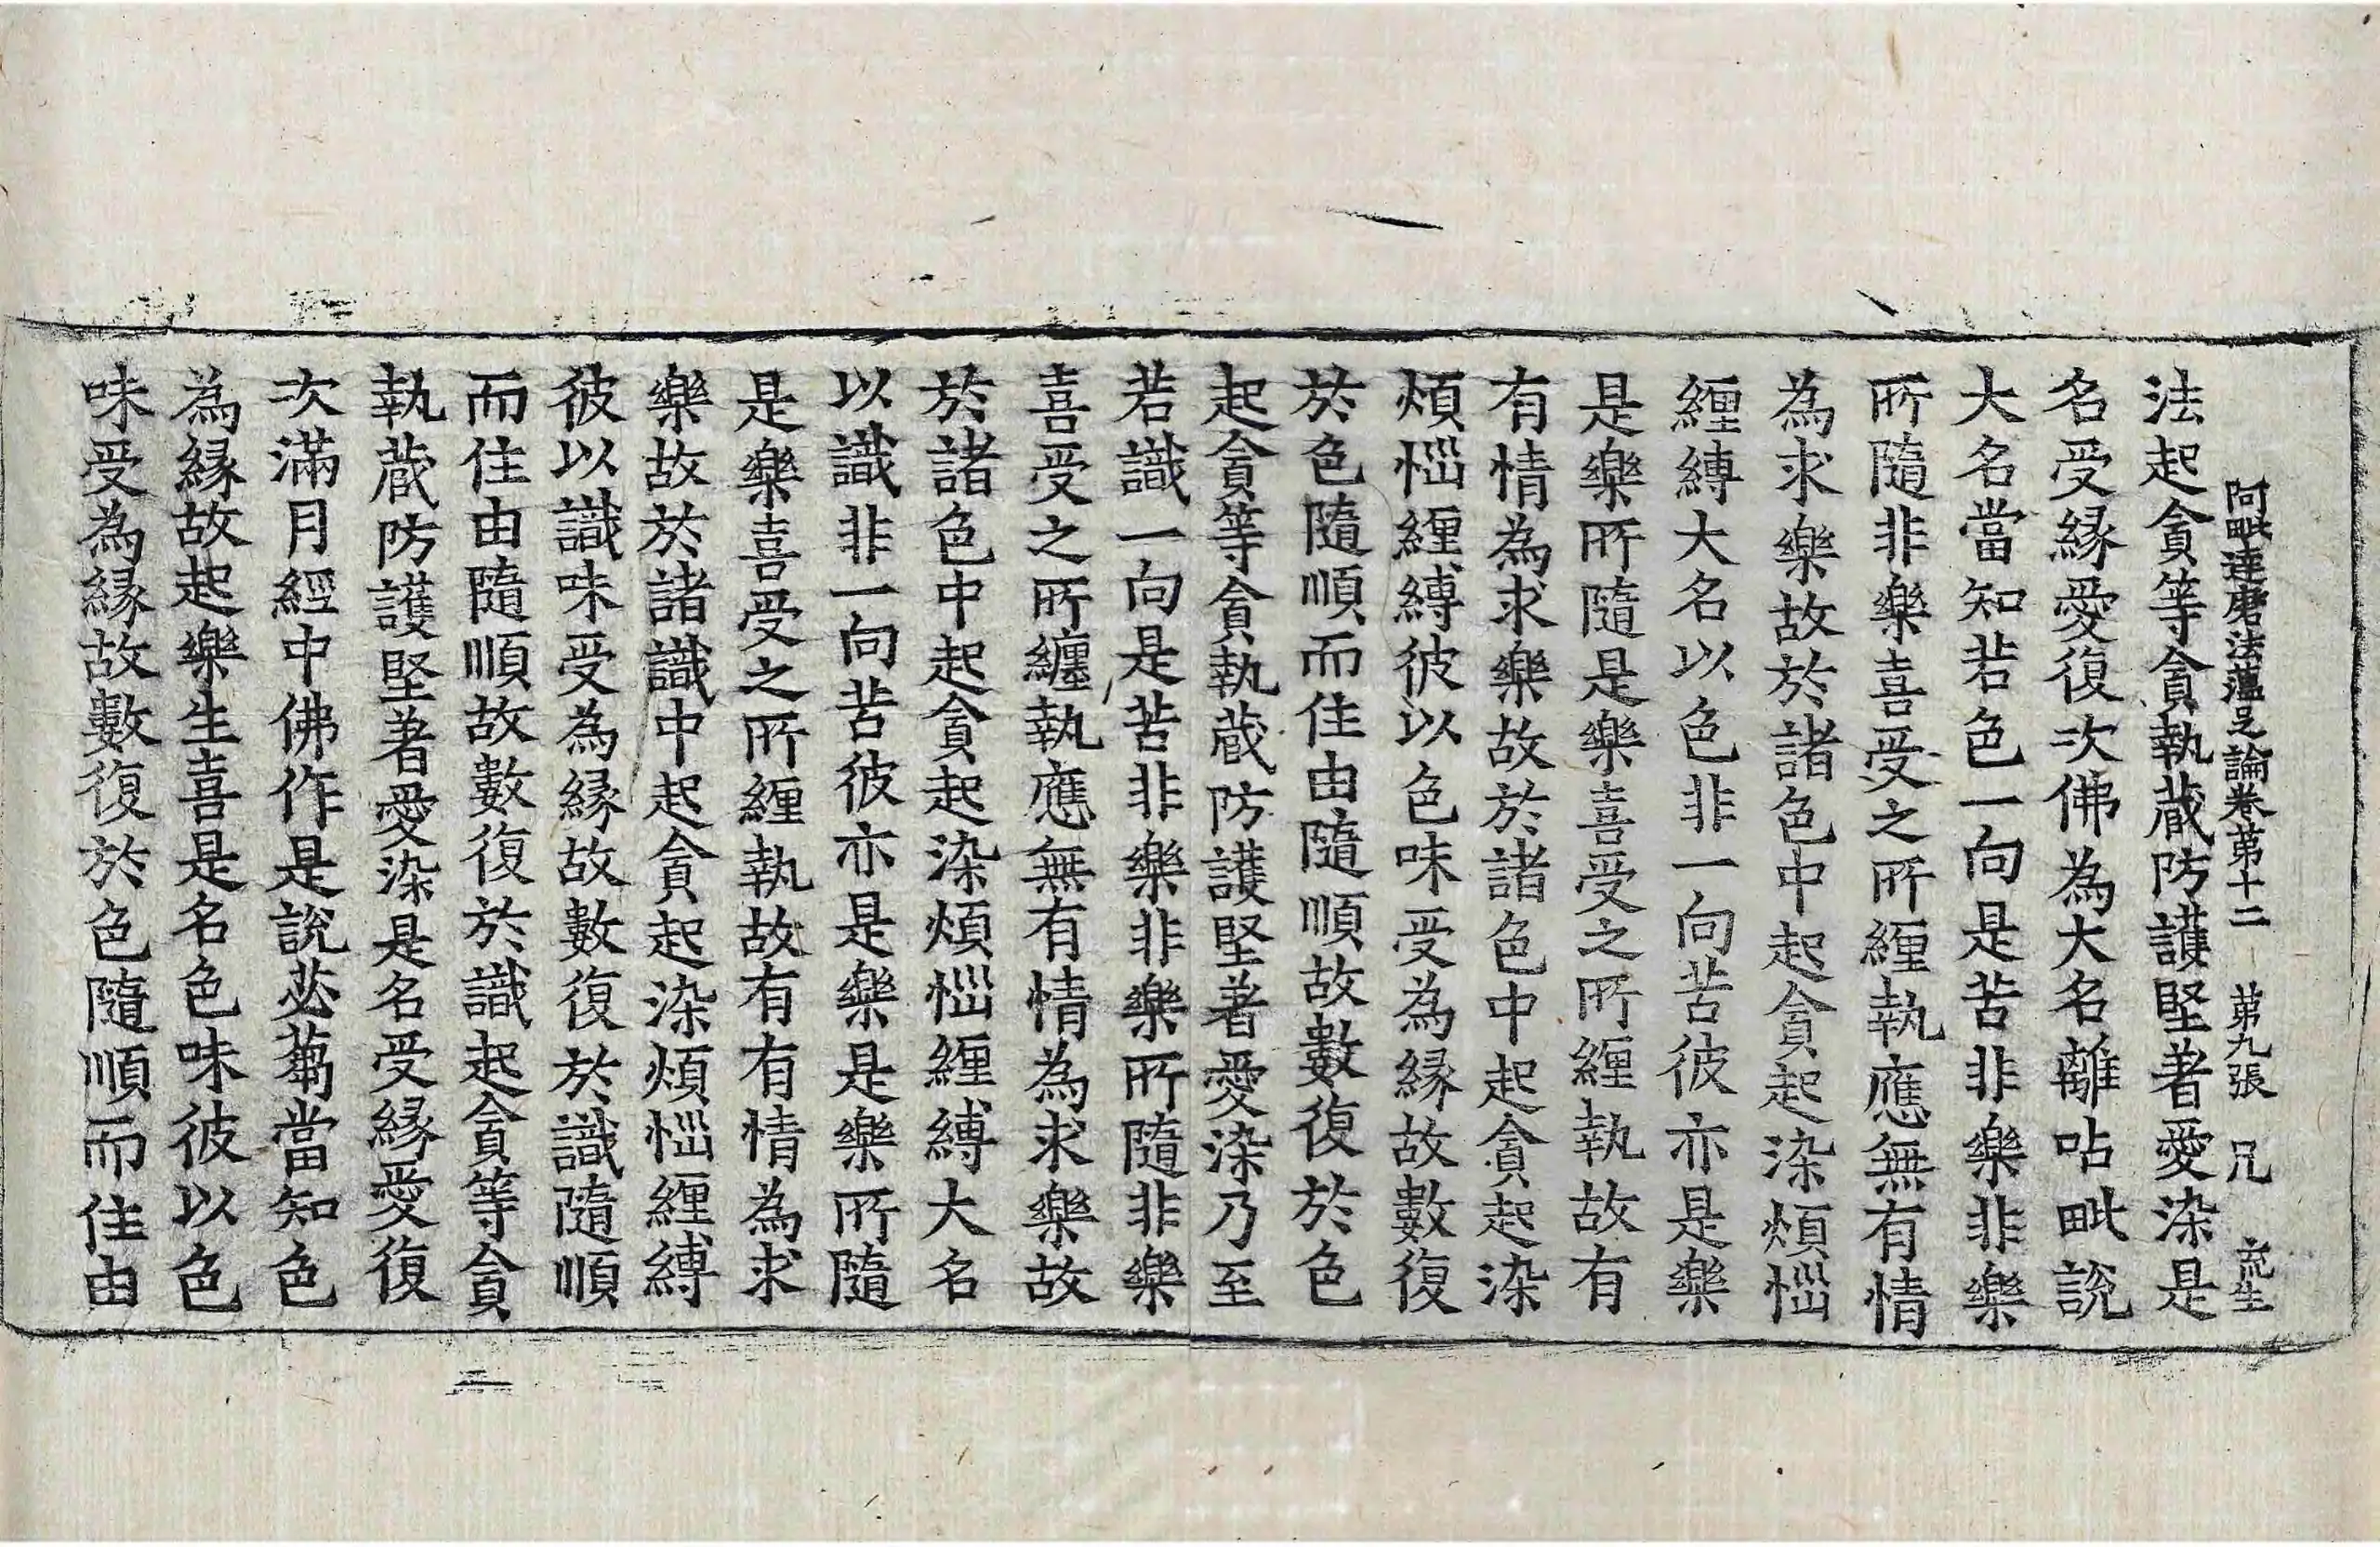 阿毗達磨法蘊足論卷第十二 第九張 兄 流生
法起貪等貪執蔵防護堅著愛染是
名受緣愛復次佛為大名離呫毗說
大名當知若色一向是苦非樂非樂
所隨非樂喜受之所纏執應無有情
為求樂故於諸色中起貪起染煩惱
纏縛大名以色非一向苦彼亦是樂
是樂所隨是樂喜受之所纏執故有
有情為求樂故於諸色中起貪起染
煩惱纏縛彼以色味受為緣故數復
於色隨順而住由隨順故數復於色
起貪等貪執蔵防護堅著愛染乃至
若識一向是苦非樂非樂所隨非樂
喜受之所纏執應無有情為求樂故
於諸色中起貪起染煩惱纏縛大名
以識非一向苦彼亦是樂是樂所隨
是樂喜受之所纏執故有有情為求
樂故於諸識中起貪起染煩惱纏縛
彼以識味受為緣故數復於識隨順
而住由隨順故數復於識起貪等貪
執蔵防護堅著愛染是名受緣愛復
次滿月經中佛作是說苾蒭當知色
為緣故起樂生喜是名色味彼以色
味受為緣故數復於色隨順而住由